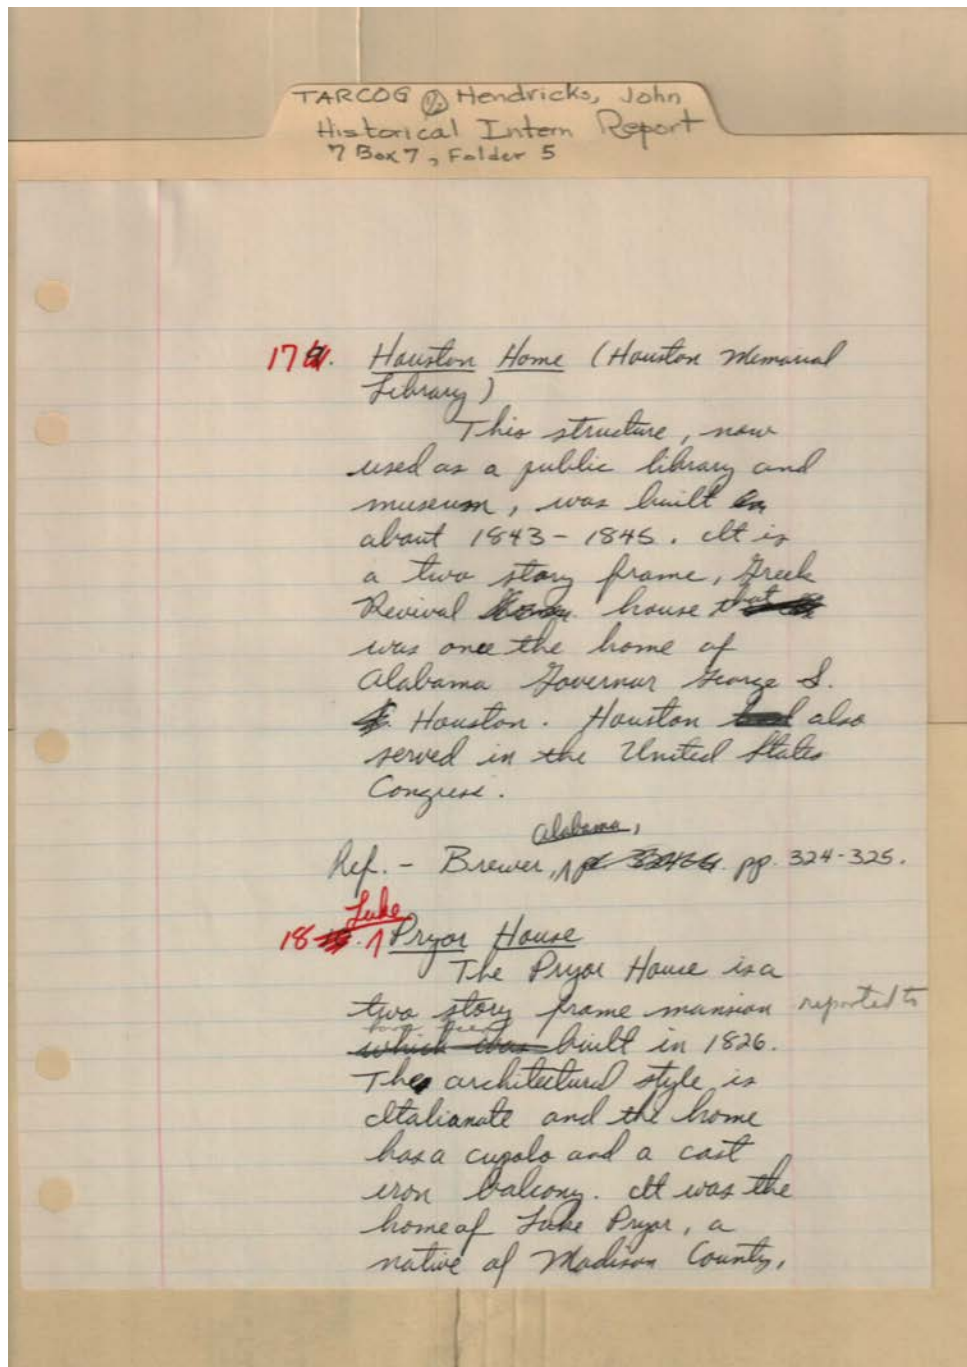 TARCOG % Hendricks, John
Historical Intern Report
7 Box 7, Folder 5
17. Houston Home (Houston Memorial
Library)
This structure, now
used as a public library and
museum, was built
about 1843-1845. It is
a two story frame, Greek
Revival house that
was once the home of
Alabama Governor George S.
Houston. Houston also
served in the United States
Congress.
Alabama,
Ref. - Brewer, pp. 324-325.
Luke
18. Pryor House
The Pryor House is a
two story frame mansion reported to
have been
which was built in 1826.
The architectural style is
Italianate and the home
has a cupolo and a cast
iron balcony. It was the
home of Luke Pryor, a
native of Madison County,